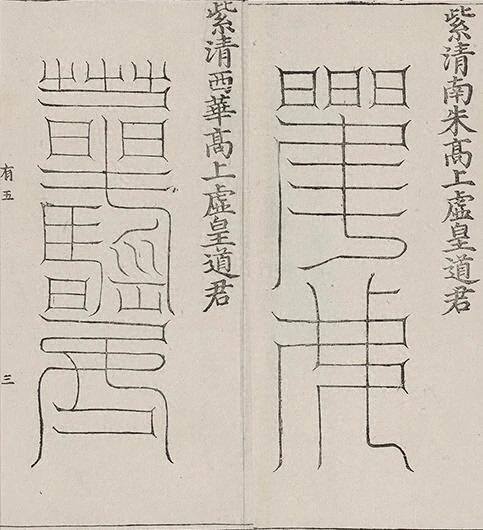 紫清南朱高上虛皇道君
紫清西華高上虛皇道君
有五
三